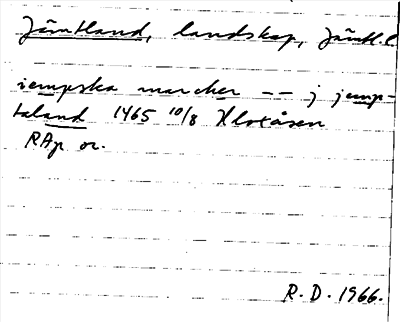 Jämtland, landskap, Jämtl. l.
iempska marcher -- j jemp-
taland 1465 10/8 Klokåsen
RAp or.
R. D. 1966.